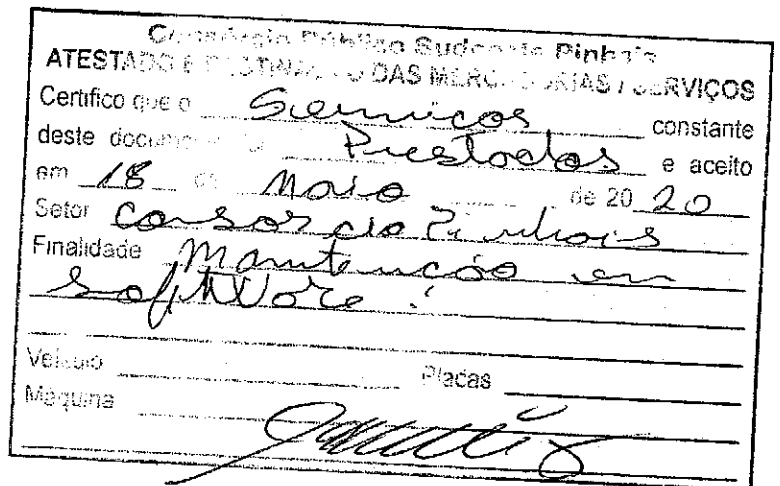 Consórcio Público Sudoeste Pinhais
ATESTADO E DESTINAÇÃO DAS MERCADORIAS / SERVIÇOS
Certifico que o Servicos constante
deste documento Prestados e aceito
em 18 de Maio de 20 20
Setor Consorcio Pinhais
Finalidade Manutencão em
Software
Veículo Placas
Máquina